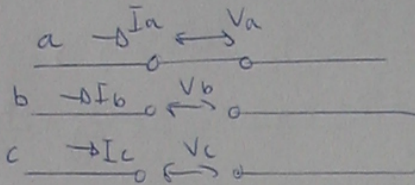 a → Ia ↔ Va
b → Ib ↔ Vb
c → Ic ↔ Vc